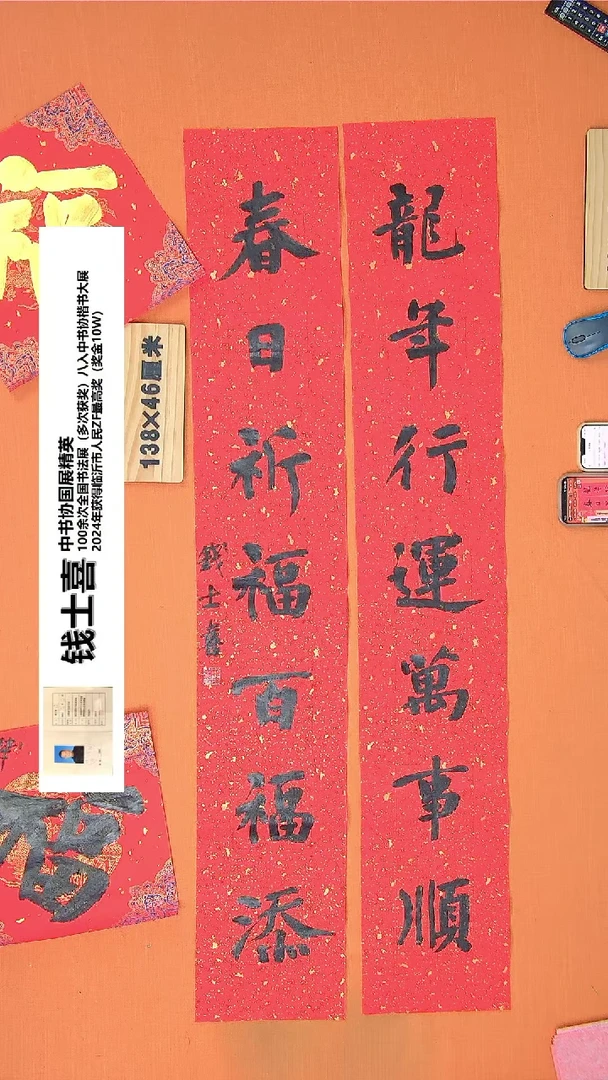 龍年行運萬事順
春日祈福百福添
錢士喜
138×46厘米
钱士喜
中书协国展精英
100余次全国书法展（多次获奖）八入中书协楷书大展
2024年获得临沂市人民ZF最高奖（奖金10W）
福